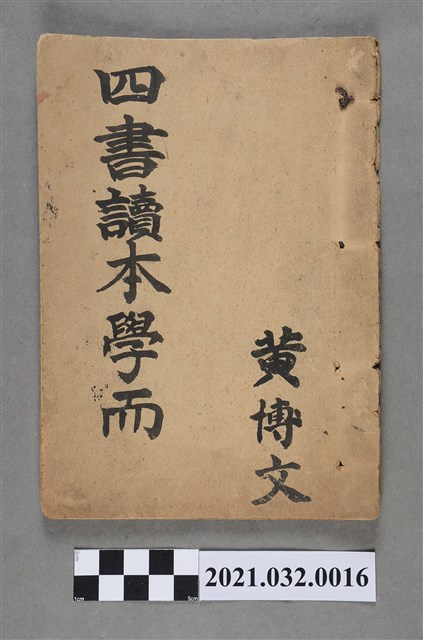 四書讀本學而
黄博文
1cm
5cm
2021.032.0016